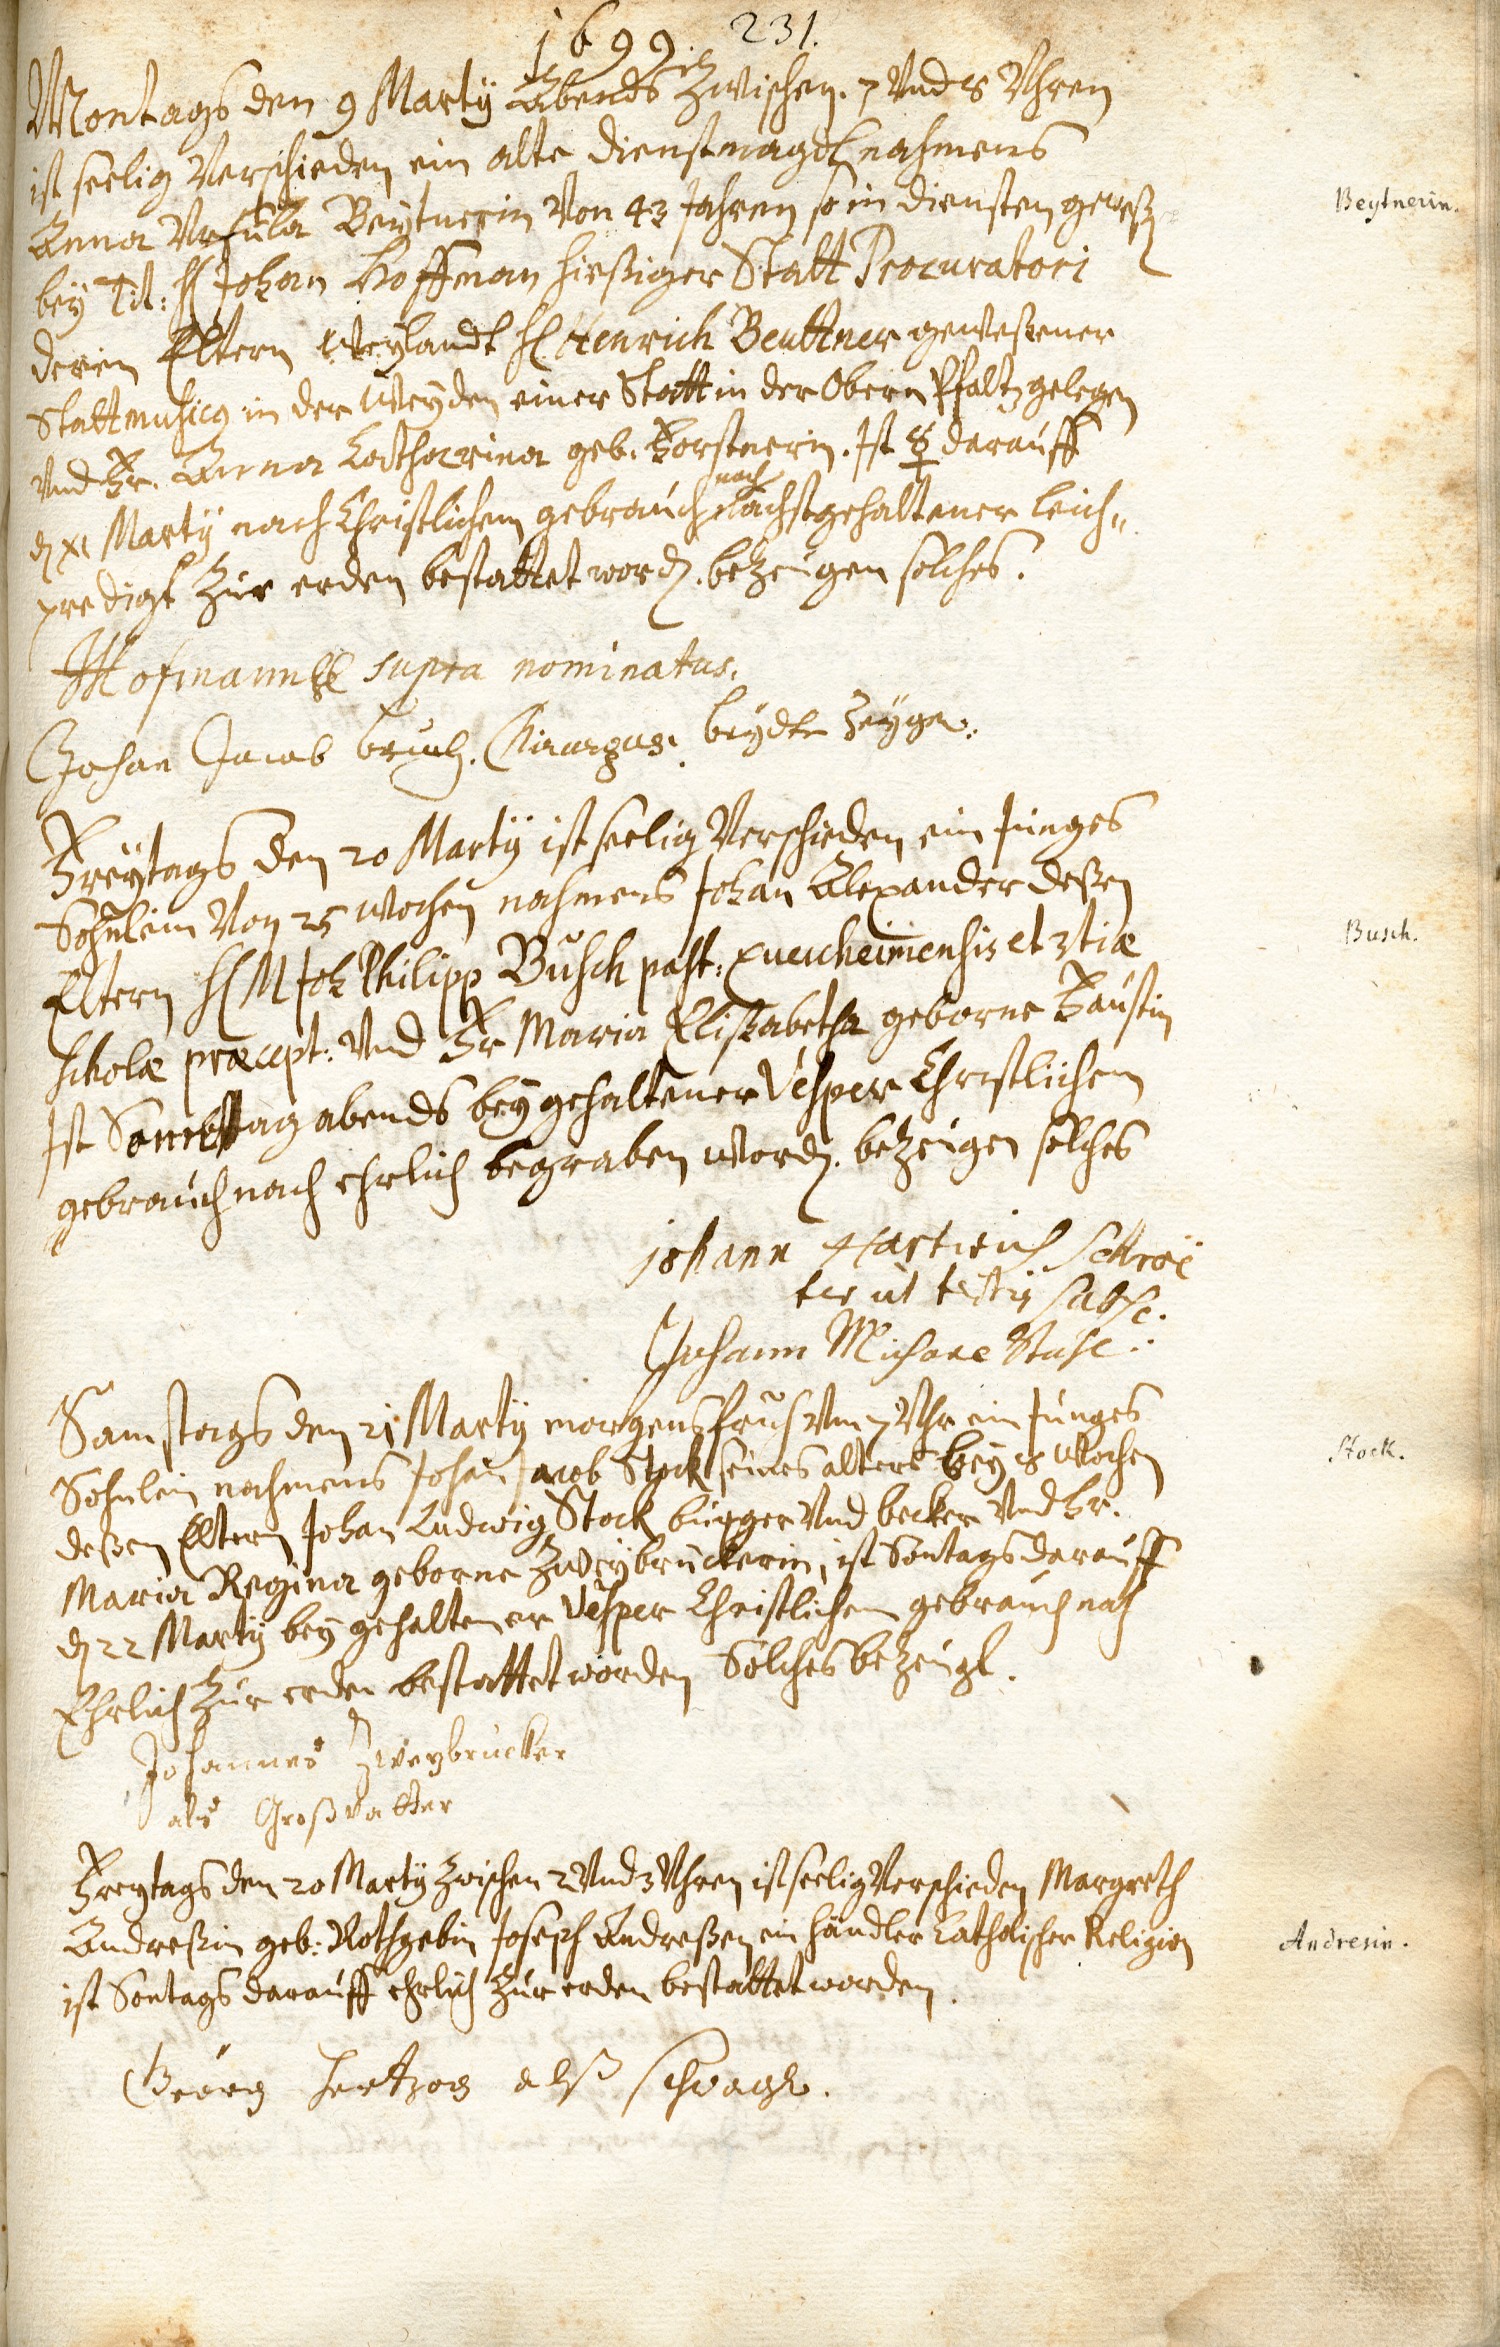 1699. 231.
Montags den 9 Martÿ Abends Zwischen. 7 Vnd 8 Vhren
ist seelig Verschieden ein alte dienstmagdt nahmens
Anna Vrsula Beÿtnerin Von 43 Jahren so in diensten geweßen
beÿ Tit: H Johan Hoffman hießiger Statt Procuratori
deren Eltern Weÿlandt H Henrich Beuttner geweßener
Stattmusicus in der Weÿden einer Statt in der Obern Pfaltz gelegen
Vnd Fr. Anna Catharina geb. Forstnerin. Ist darauff
d XI Martÿ nach Christlichem gebrauch nach nächstgehaltener leich„
predigt Zur erden bestattet word. beZeugen solches.
Hofmann supra nominatus.
Johan Jacob Chirurgus. beÿdte Zeÿgen.
Beytnerin.
Freÿtags den 20 Martÿ ist seelig Verschieden ein Junges
Sohnlein Von 25 wochen nahmens Johan Alexander deßen
Eltern H M Joh Philipp Busch past: Queicheimensis et 3tiæ
scholæ præcept: Vnd Fr Maria Elisabetha geborne Faustin
Ist Sonnttag abends beÿ gehaltener Vesper Christlichem
gebrauch nach ehrlich begraben word. beZeugen solches
Busch.
johann Hartwich
ut testis subsc.
Johann Michael
Samstags den 21 Martÿ morgens fruh Vm 7 Vhr ein Junges
Sohnlein nahmens Johan Jacob Stock seines alters beÿ 8 Wochen
deßen Eltern Johan Ludwig Stock burger Vnd becker Vnd Fr.
Maria Regina geborne Zweÿbruckerin, ist Sontags darauff
d 22 Martÿ beÿ gehaltener Vesper Christlichem gebrauch nach
Ehrlich Zur erden bestattet worden Solches beZeugt.
Stock.
Johannes Zweybrucker
als Großvatter
Freytags den 20 Martÿ Zwischen 2 Vnd 3 Vhren ist seelig Verschieden Margreth
Andreßin geb: Rothgebin Joseph Andreßen ein händler Catholischer Religion
ist Sontags darauff ehrlich Zur erden bestattet worden.
Andresin.
Georg hertzog alß schwager.